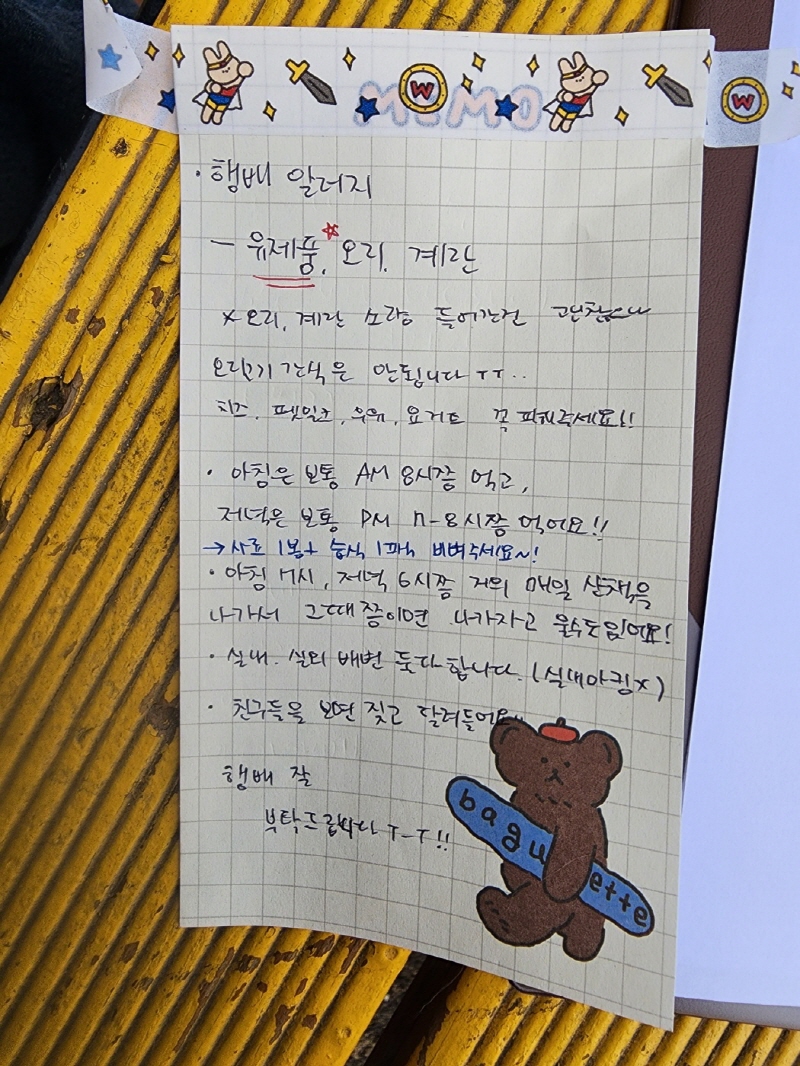 W W
MEMO
·행배 알러지
- 유제품, 오리, 계란
x 오리, 계란 소량 들어간건 괜찮으나
오리고기 간식은 안됩니다 ㅜㅜ..
치즈, 우유, 요거트 꼭 피해주세요!!
· 아침은 보통 AM 8시쯤 먹고,
저녁은 보통 PM 7-8시쯤 먹어요!!
→ 사료 1봉 + 습식 1팩 비벼주세요~!
· 아침 7시, 저녁 6시쯤 거의 매일 산책을
나가서 그때쯤이면 나가자고 울수도있어요!
· 실내, 실외 배변 둘다합니다. (실내마킹x)
· 친구들을 보면 짖고 달려들어요
행배 잘
부탁드립니다 ㅜ-ㅜ!!
baguette